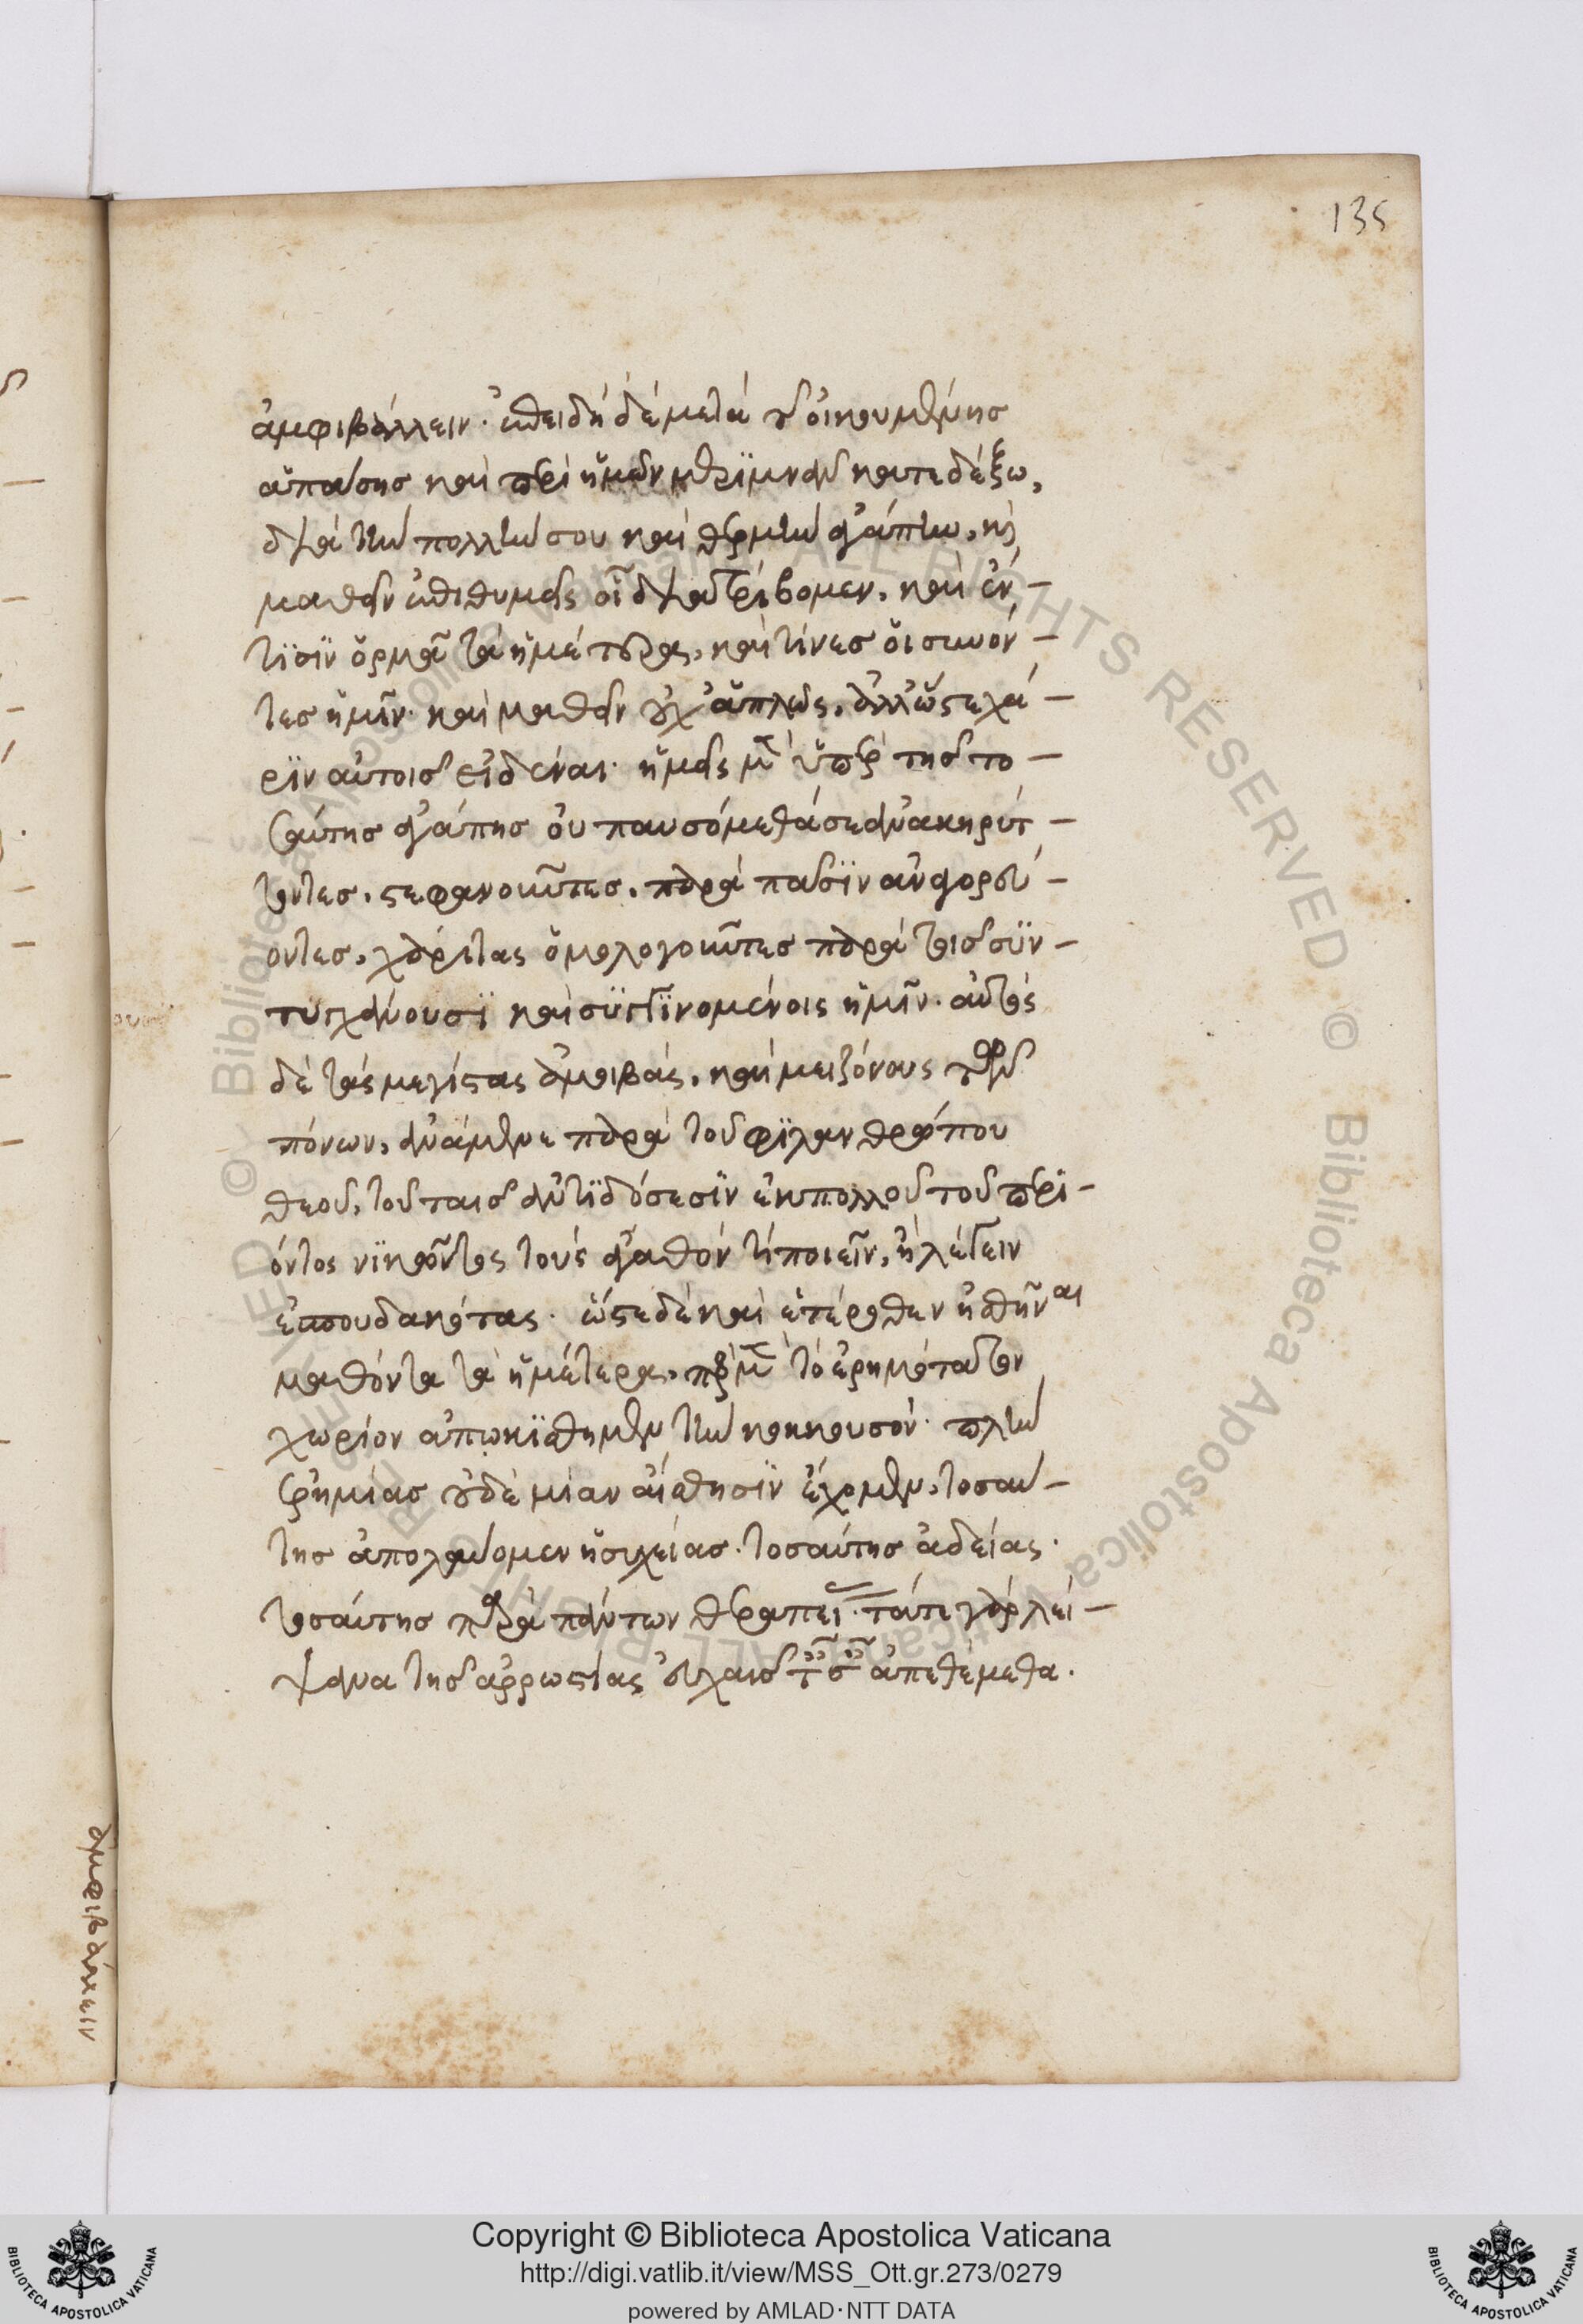 135
ἀμφιβάλλειν· ἐπειδὴ δὲ μετὰ τ οἰκουμένης
ἁπάσης καὶ περὶ ἡμῶν μεριμνᾶν κατεδέξω,
διὰ τὴν πολλήν σου καὶ θερμὴν ἀγάπην, κ
μαθεῖν ἐπιθυμεῖς οἷ διατρίβομεν, καὶ ἐν –
τίσιν ὁρμᾶ τὰ ἡμέτερα, καὶ τίνες οἱ συνόν –
τες ἡμῖν· καὶ μαθεῖν οὐχ ἁπλῶς, ἀλλ' ὥστε χά –
ριν αὐτοῖς εἰδέναι· ἡμεῖς μὲν ὑπὲρ τῆς το –
σαύτης ἀγάπης οὐ παυσόμεθά σε ἀνακηρύτ –
τοντες, στεφανοῦντες, παρὰ πᾶσιν ἀναγορεύ –
οντες, χάριτας ὁμολογοῦντες παρὰ τοῖς συν –
τυγχάνουσι καὶ συγγινομένοις ἡμῖν· αὐτὸς
δὲ τὰς μεγίστας ἀμοιβάς, καὶ μείζονους τῶν
πόνων, ἀνάμενε παρὰ τοῦ φιλανθρώπου
θεοῦ, τοῦ ταῖς ἀντιδόσεσιν ἐκ πολλοῦ τοῦ περι –
όντος νικῶντος τοὺς ἀγαθόν τι ποιεῖν, ἢ λέγειν
ἐσπουδακότας· ὥστε δὲ καὶ ἑτέρωθεν ἡσθῆναι
μαθόντα τὰ ἡμέτερα, πρὸς μὲν τὸ ἐρημότατον
χωρίον ἀπωκίσθημεν τὴν κουκουσόν· πλὴν
ἐρημίας οὐδὲ μίαν αἴσθησιν ἔχομεν, τοσαύ –
της ἀπολαύομεν ἡσυχίας· τοσαύτης ἀδείας·
τοσαύτης παρὰ πάντων θεραπεί· τά τε γὰρ λεί –
ψανα τῆς ἀρρωστίας εὐχαῖς ἀπεθέμεθα.
ἀμφιβάλλειν
Copyright © Biblioteca Apostolica Vaticana
http://digi.vatlib.it/view/MSS_Ott.gr.273/0279
powered by AMLAD·NTT DATA
BIBLIOTECA APOSTOLICA VATICANA
BIBLIOTECA APOSTOLICA VATICANA